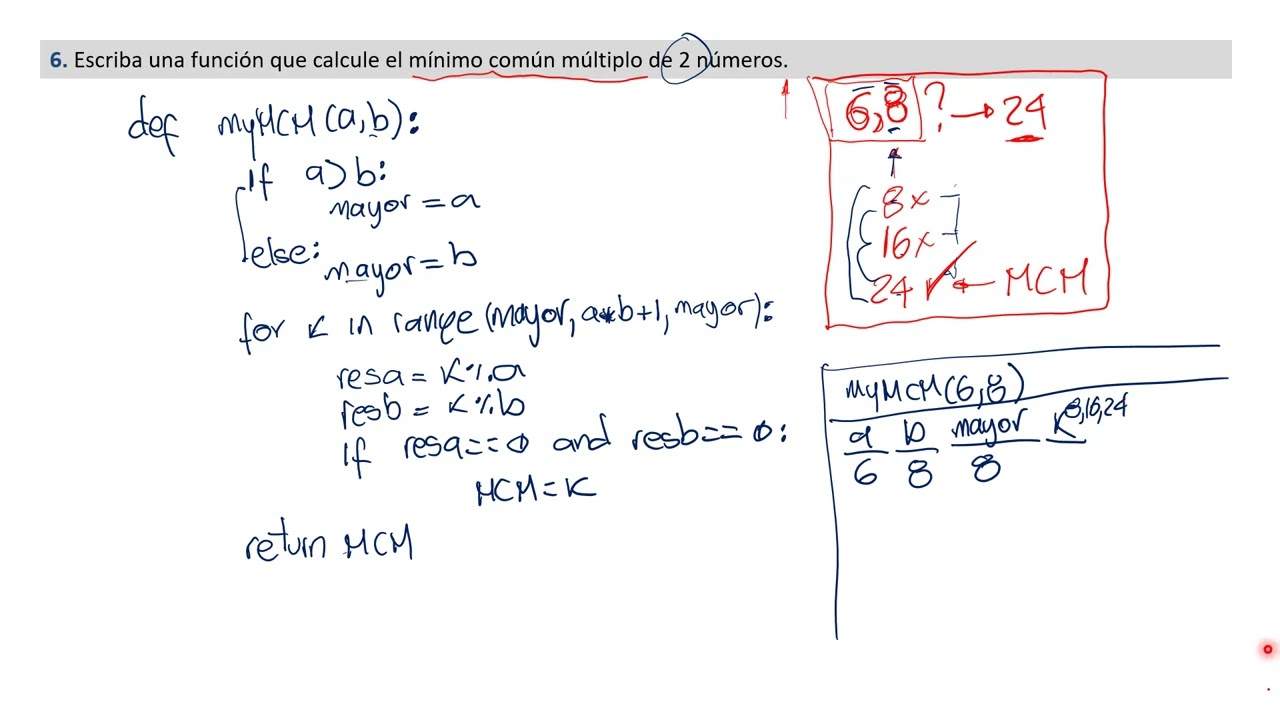 6. Escriba una función que calcule el mínimo común múltiplo de 2 números.
def myMCM(a,b):
If a>b:
mayor = a
else:
mayor = b
for K in range(mayor, a*b+1, mayor):
resa = K%a
resb = K%b
If resa==0 and resb==0:
MCM=K
return MCM
6,8 ? → 24
8x
16x
24 ✓ ← MCM
MyMCM(6,8)
a b mayor K 8,16,24
6 8 8